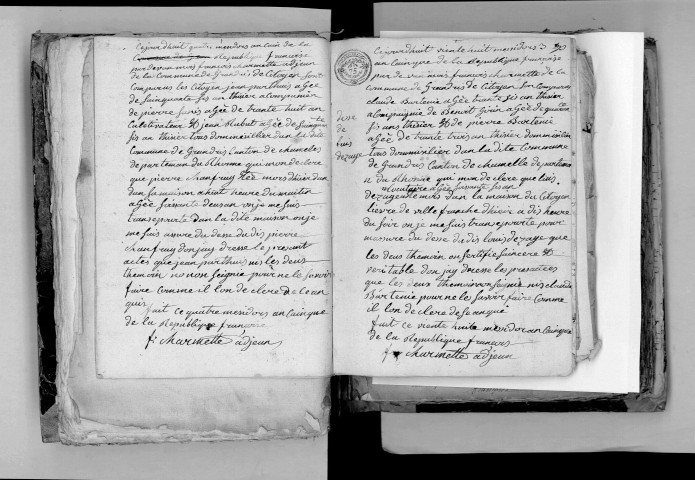 Cejourdhuit quatre mesidors an cain de la
Republique francoise
par devan mois francois charmette adjeun
de la Commune de Grandris de Citoyen sont
Comparus les Citoyen jean purthuis agée
de Sainquante sis an thisier acompaniér
de pierre agée de trante huit an
Culetivateur & jean Nabut agée de
sis an thisier tous domensilier dan la dite
Commune de Grandris Canton de chamelet
departeman du Rhonne qui mon declere
que pierre Manfruy mors thier dan
dan sa maison a hiat heure du maitin
agée soisente deusan on je me suis
transsporté dan la dite maison on je
me suis assure du desse du dis pierre
Manfruy don jay dresse le present
acte que jean purthuis nis les deus
themoin no non seignie pour ne le savoir
faire comme il lon declere de ce an
quis
fait ce quatre mesidors an Cainque
de la Republique francoise
f: Charmette adjeun
Cejourdhuit vente huit mesidors
an Cainque de la Republique francoise
par devan mois francois charmette de la
Commune de Grandris de Citoyen son Comparus
claude Burtenie agée trante sis an thisier
acompagnie de Benoit agée de quaran
sis ans thisier & de pierre Burtenie
agée de trante trois an thisier domensilier
tous domensilier dan la dite Commune
de Grandris Canton de Chamelle de parteman
du Rhonne qui mon declere que luis
agée soisante sis an
dezage mors dan la maison du Citoyen
lievre de ville franche dhier a dis heure
du soir on je me suis transsporte pour
massure du desse du dis louis dezage que
les deus themoin on sertifie saincere &
veritable don jay dresse les presentes
que les deus themoin non saignie nis claude
Burtenie pour ne le savoir faire Comme
il lon declere de se anquis
fait ce vente huite mesidor an Cainque
de la Republique francois
f: Charmette adjeun
desse
de
luis
dezage